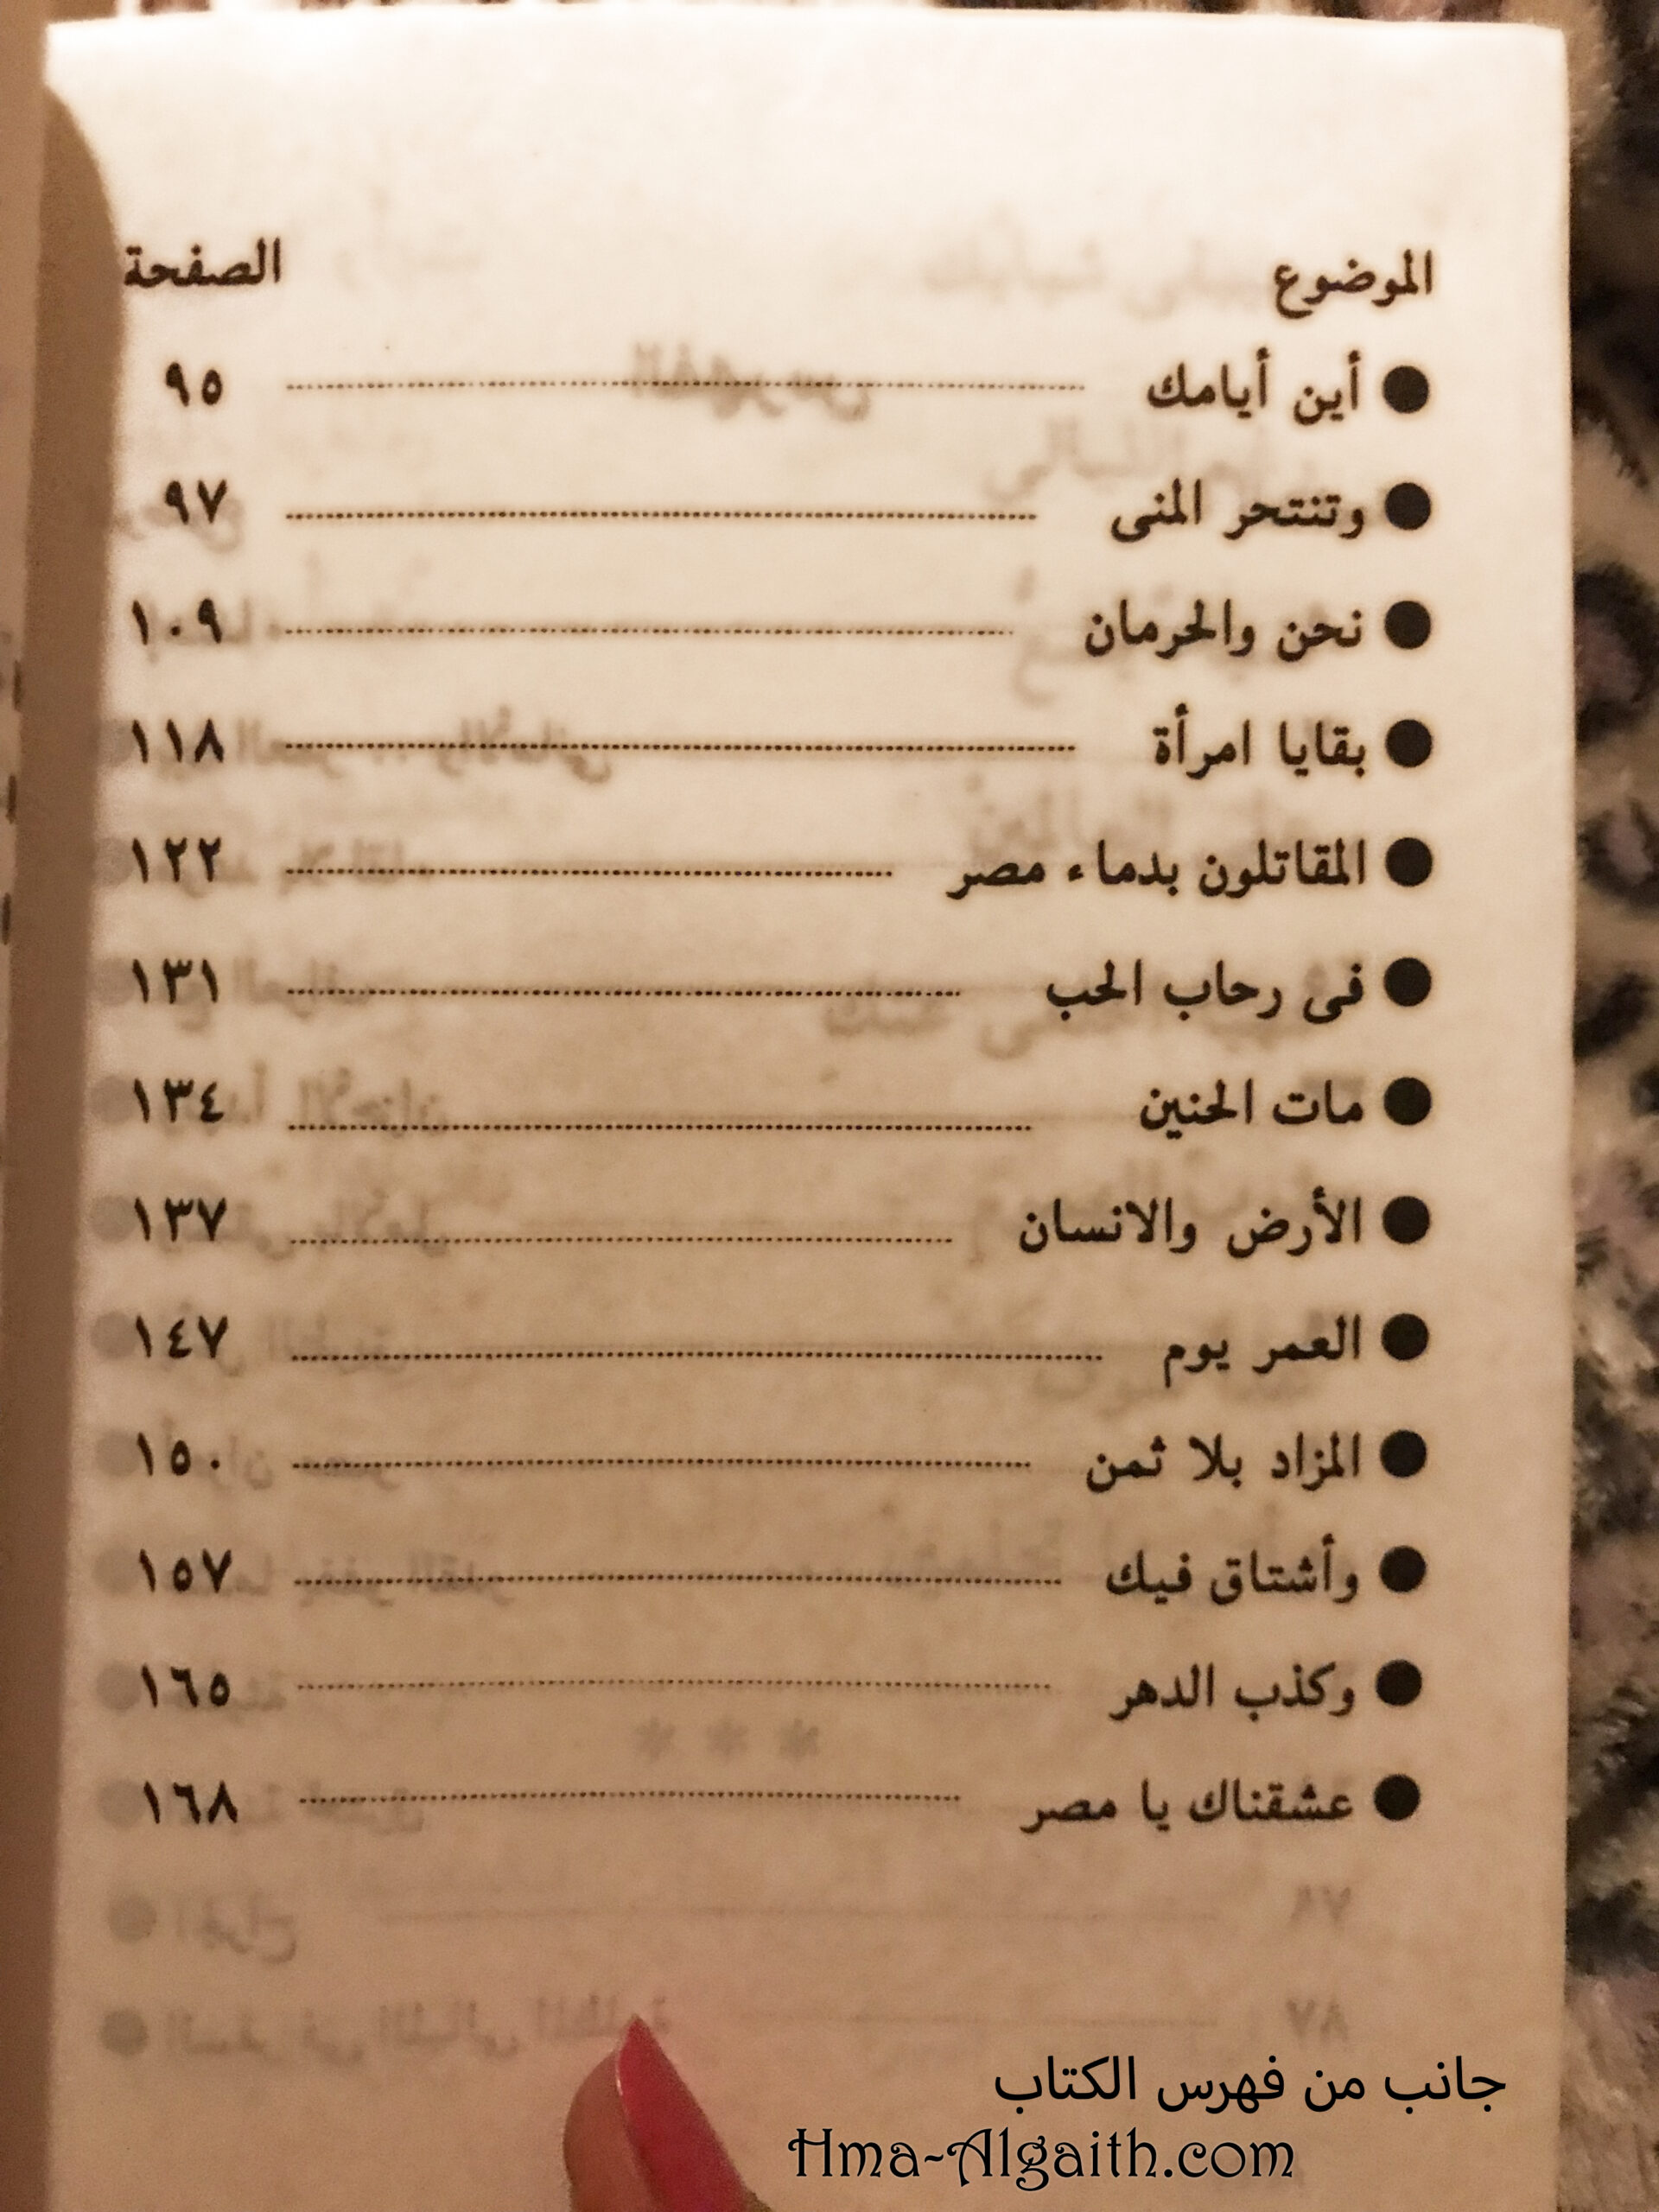 الموضوع الصفحة
● أين أيامك ........ ٩٥
● وتنتحر المنى ........ ٩٧
● نحن والحرمان ........ ١٠٩
● بقايا امرأة ........ ١١٨
● المقاتلون بدماء مصر ........ ١٢٢
● فى رحاب الحب ........ ١٣١
● مات الحنين ........ ١٣٤
● الأرض والانسان ........ ١٣٧
● العمر يوم ........ ١٤٧
● المزاد بلا ثمن ........ ١٥٠
● وأشتاق فيك ........ ١٥٧
● وكذب الدهر ........ ١٦٥
● عشقناك يا مصر ........ ١٦٨
جانب من فهرس الكتاب
Hma-Algaith.com